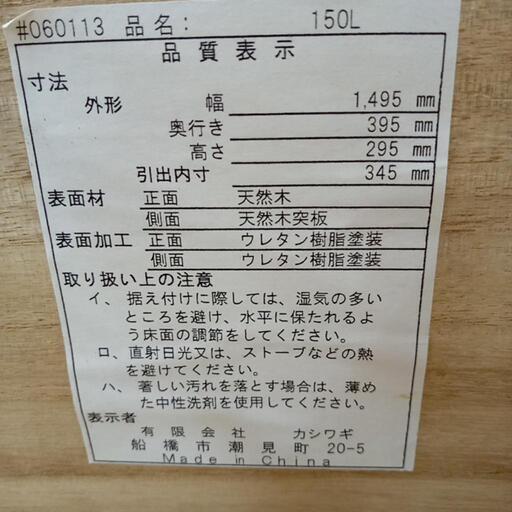 #060113 品名: 150L
品質表示
寸法
外形 幅 1,495 mm
奥行き 395 mm
高さ 295 mm
引出内寸 345 mm
表面材 正面 天然木
側面 天然木突板
表面加工 正面 ウレタン樹脂塗装
側面 ウレタン樹脂塗装
取り扱い上の注意
イ、据え付けに際しては、湿気の多い
ところを避け、水平に保たれるよ
う床面の調節をしてください。
ロ、直射日光又は、ストーブなどの熱
を避けてください。
ハ、著しい汚れを落とす場合は、薄め
た中性洗剤を使用してください。
表示者
有限会社 カシワギ
船橋市潮見町 20-5
Made in China